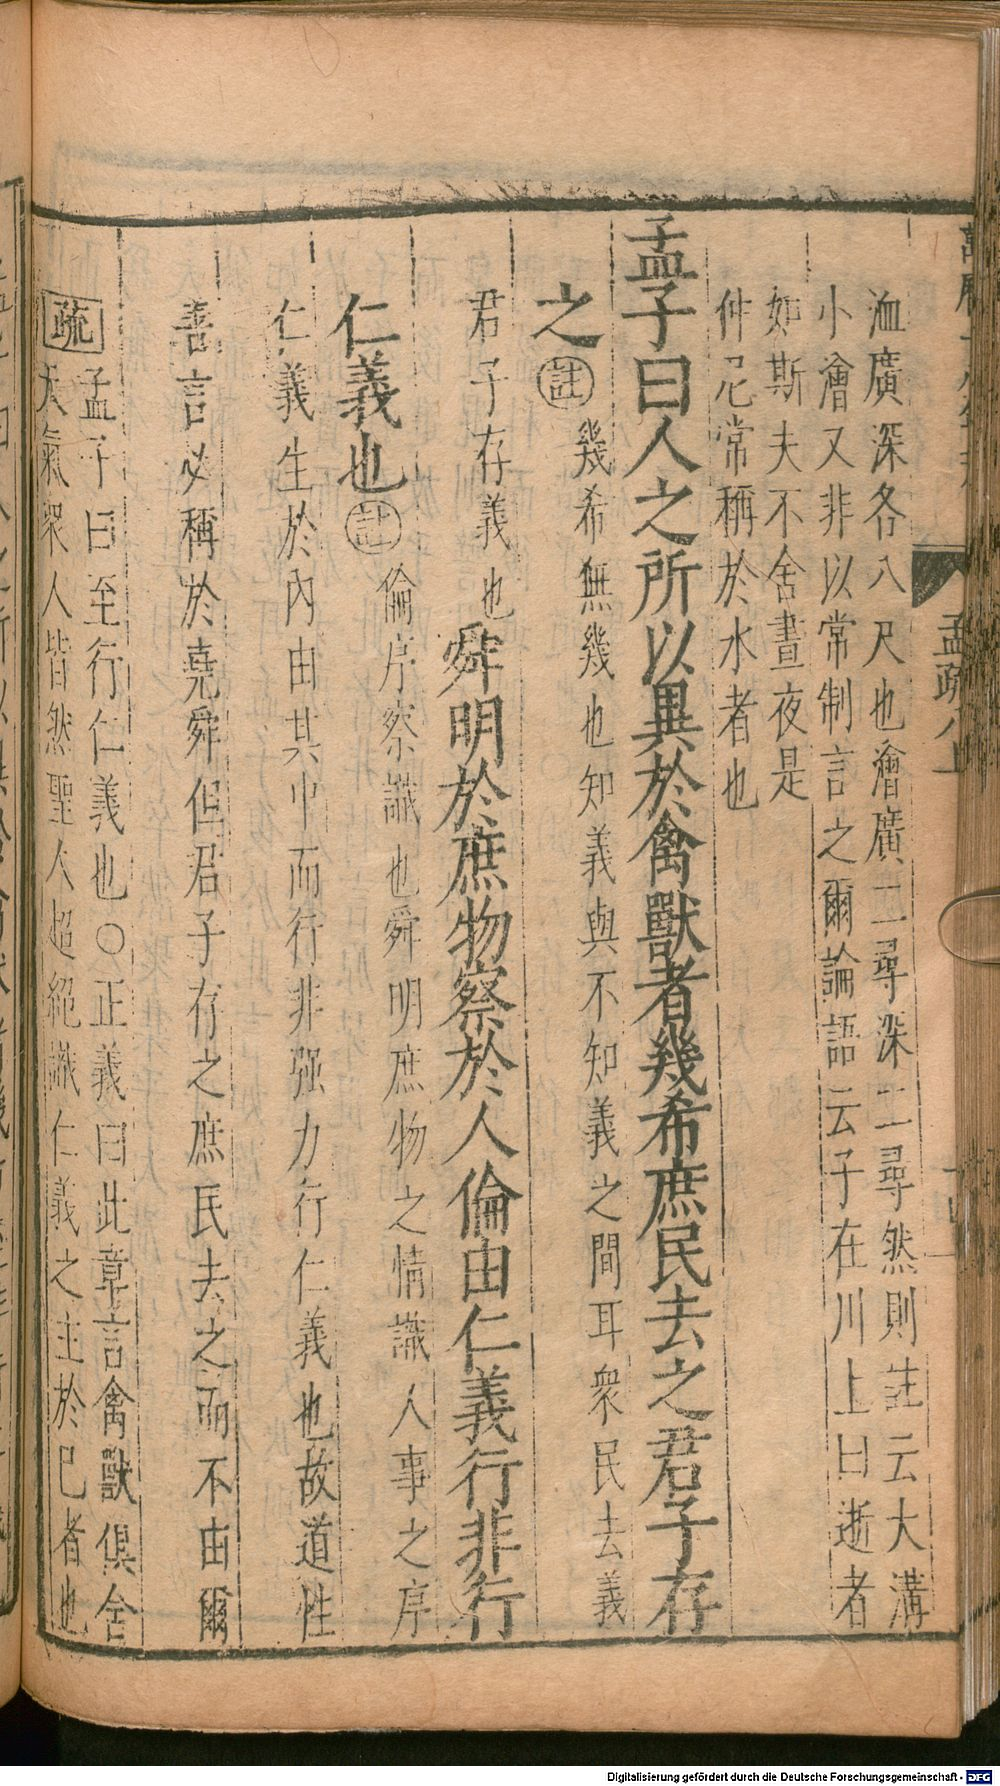 洫廣深各八尺也澮廣二尋深二尋然則註云大溝
小澮又非以常制言之爾論語云子在川上曰逝者
如斯夫不舍晝夜是
仲尼常稱於水者也
孟子曰人之所以異於禽獸者幾希庶民去之君子存
之註幾希無幾也知義與不知義之間耳衆民去義
君子存義也舜明於庶物察於人倫由仁義行非行
仁義也註倫序察識也舜明庶物之情識人事之序
仁義生於內由其中而行非强力行仁義也故道性
善言必稱於堯舜但君子存之庶民去之而不由爾
疏孟子曰至行仁義也○正義曰此章言禽獸俱含
天氣衆人皆然聖人超絕識仁義之主於己者也
孟疏八上
Digitalisierung gefördert durch die Deutsche Forschungsgemeinschaft - DFG